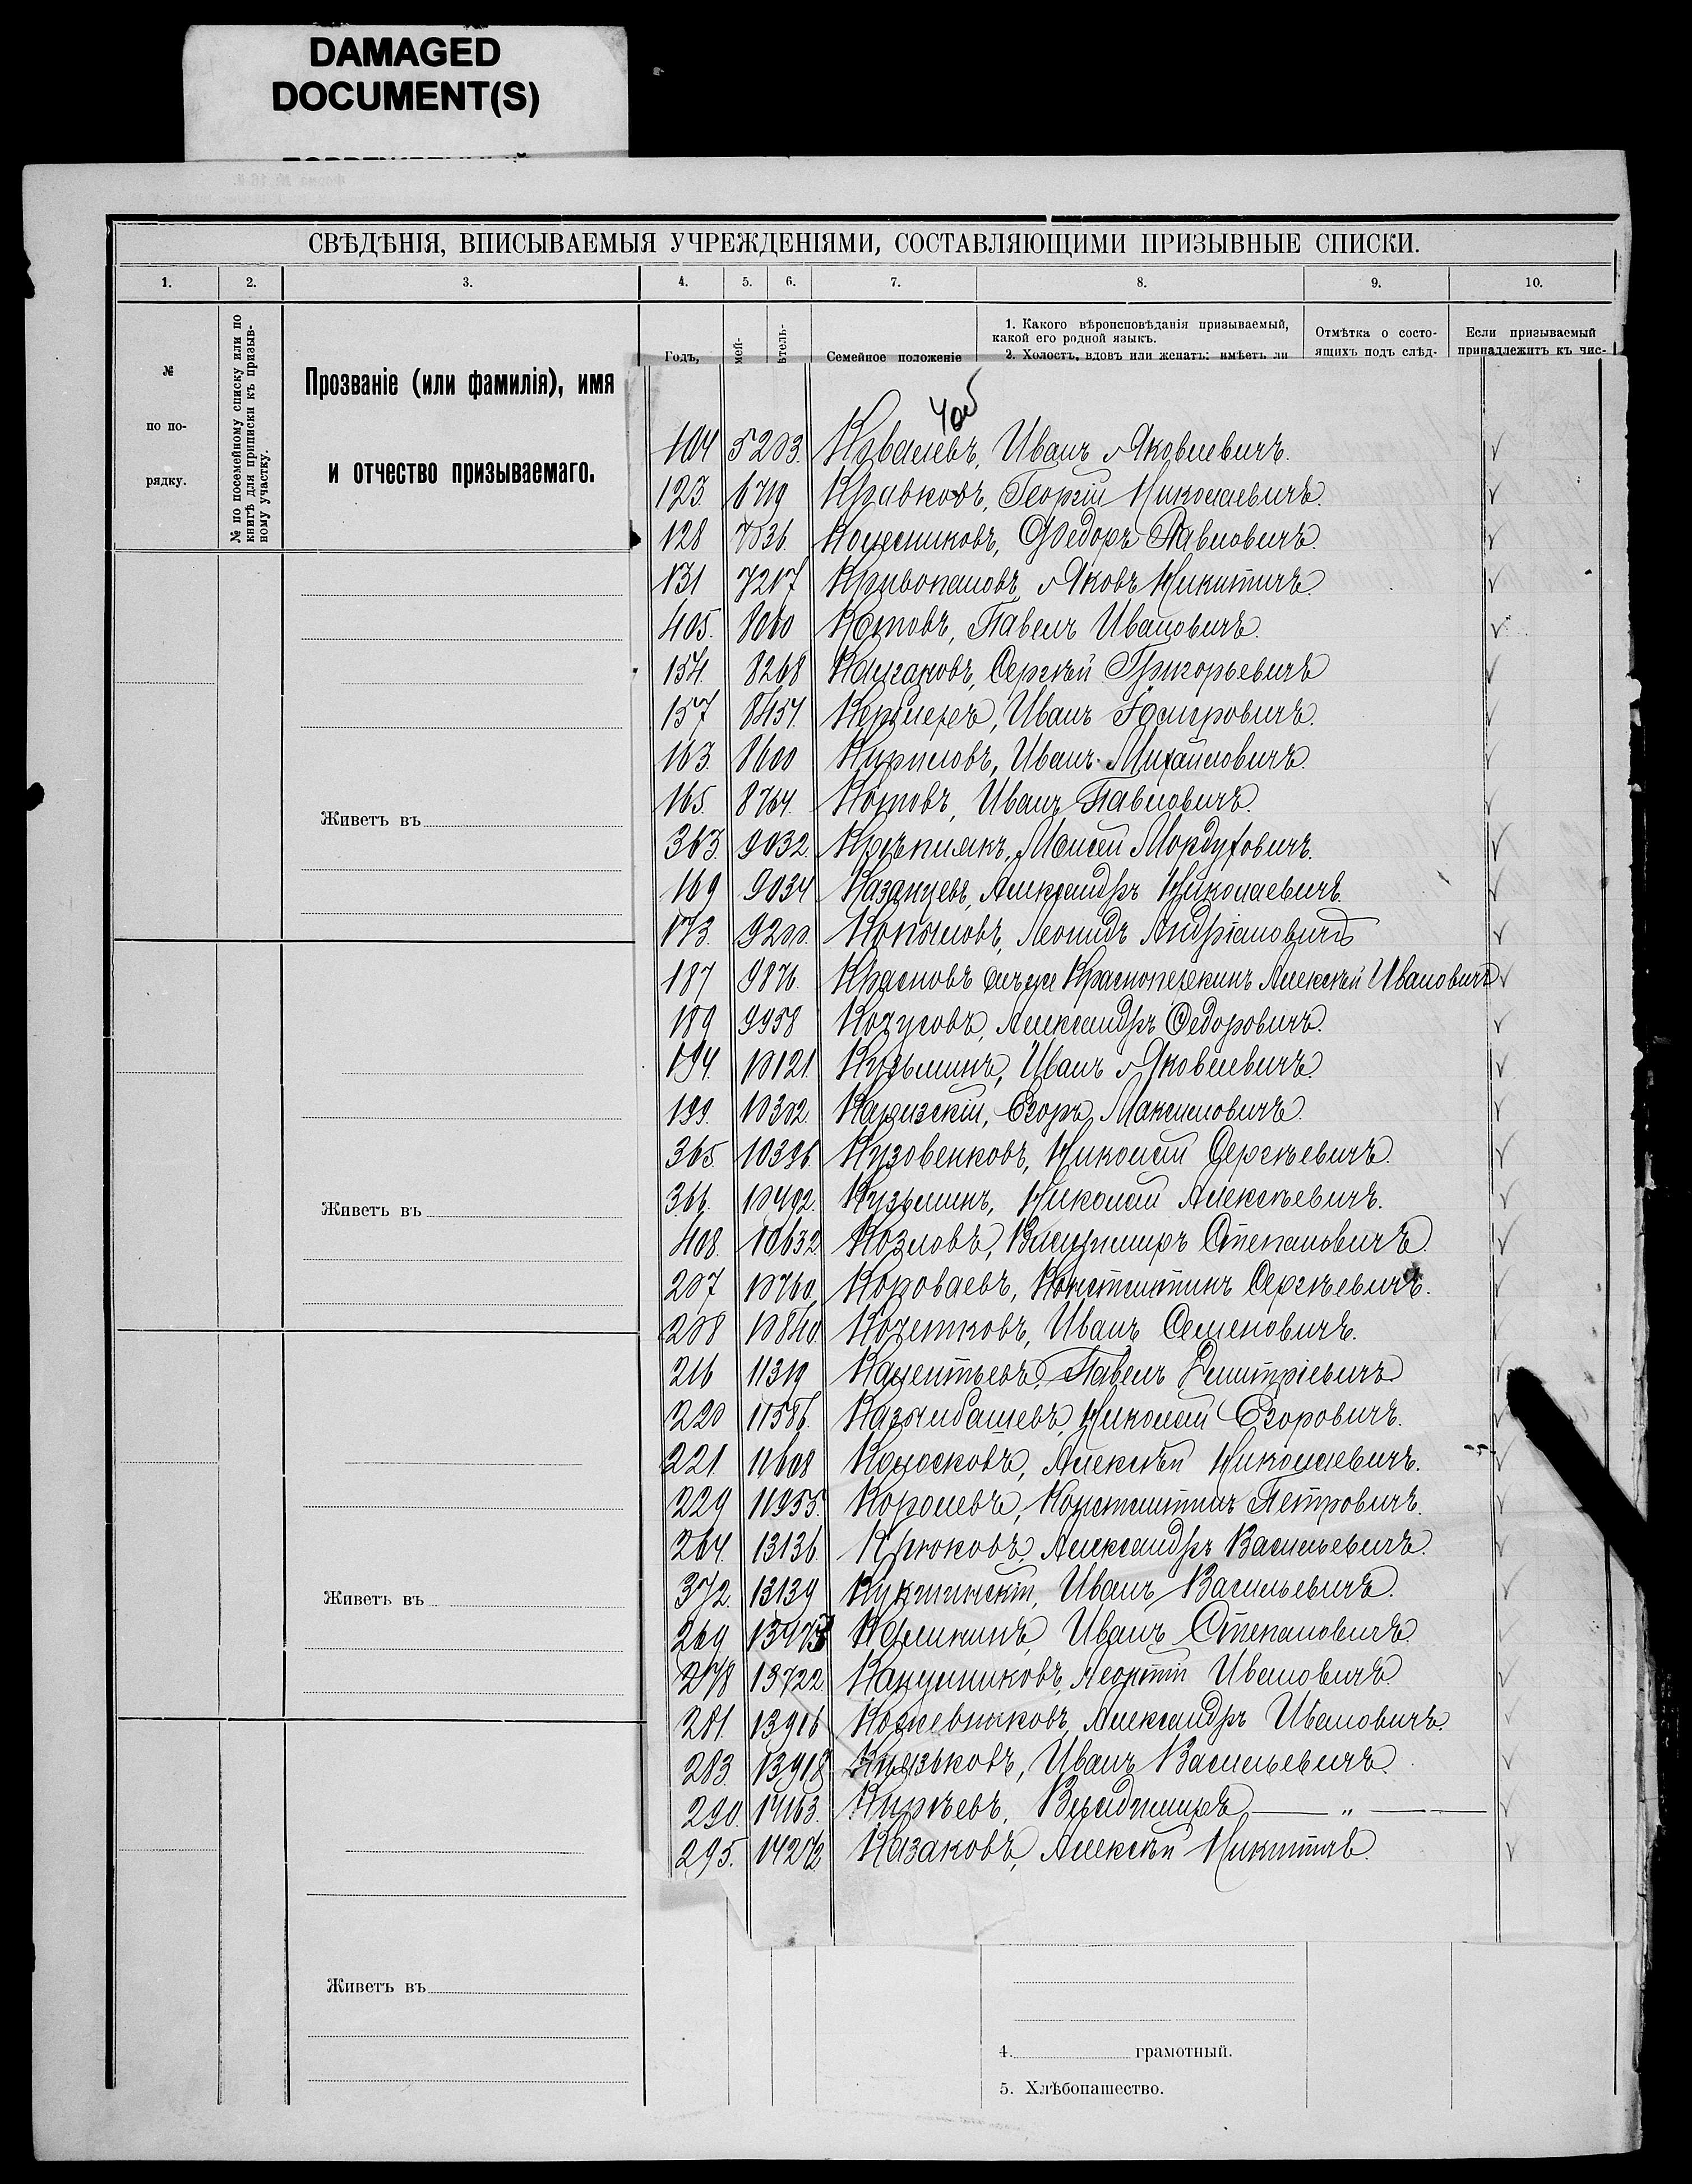 DAMAGED
DOCUMENT(S)
СВѢДѢНІЯ, ВПИСЫВАЕМЫЯ УЧРЕЖДЕНІЯМИ, СОСТАВЛЯЮЩИМИ ПРИЗЫВНЫЕ СПИСКИ.
1. 2. 3. 4. 5. 6. 7. 8. 9. 10.
№
по по-
рядку.
№ по посемейному списку или по
книгѣ для приписки къ призыв-
ному участку.
Прозваніе (или фамилія), имя
и отчество призываемаго.
Годъ,
мей-
ѣтель-
Семейное положеніе
1. Какого вѣроисповѣданія призываемый,
какой его родной языкъ.
2. Холостъ, вдовъ или женатъ: имѣетъ ли
Отмѣтка о состо-
ящихъ подъ слѣд-
Если призываемый
принадлежитъ къ чис-
104 5203. Ковалевъ, Иванъ Яковлевичъ.
123. 6719 Кравковъ, Георгій Николаевичъ.
128 7036. Колесниковъ, Федоръ Павловичъ.
131 7217 Кривопаловъ, Яковъ Никитичъ.
405. 8060 Котовъ, Павелъ Ивановичъ.
154. 8268 Калгановъ, Сергѣй Григорьевичъ
157 8454. Иванъ
163. 8600 Кириловъ, Иванъ Михайловичъ.
165. 8764. Котовъ, Иванъ Павловичъ.
363. 9032. Моисей Мордуховичъ.
169 9034 Казанцевъ, Александръ Николаевичъ.
173. 9200. Копыловъ, Леонидъ Андріановичъ
187 9876. Красновъ онъ же Алексѣй Ивановичъ
189 9958 Александръ Федоровичъ.
194. 10121. Кузьминъ, Иванъ Яковлевичъ.
199. 10302. Егоръ Максимовичъ.
365. 10396. Кузовенковъ, Николай Сергѣевичъ.
366. 10492. Кузьминъ, Николай Алексѣевичъ.
408. 10632 Козловъ, Владиміръ Степановичъ.
207 10760. Короваевъ, Константинъ Сергѣевичъ.
208 10840. Кочетковъ, Иванъ Семеновичъ.
216 11319 Павелъ Дмитріевичъ
220 11586. Николай Егоровичъ.
221. 11608 Колосковъ, Алексѣй Николаевичъ.
229 11955. Королевъ, Константинъ Петровичъ.
264. 13136. Крюковъ, Александръ Васильевичъ.
372. 13139 Иванъ Васильевичъ.
269 Калининъ, Иванъ Степановичъ.
278 13722. Леонтій Ивановичъ.
281. 13916 Кожевниковъ, Александръ Ивановичъ.
283. 13918 Князьковъ, Иванъ Васильевичъ.
290. 14163. Кирѣевъ, Владиміръ — „ —
295. 14272 Казаковъ, Алексѣй Никитичъ.
Живетъ въ
Живетъ въ
Живетъ въ
Живетъ въ
4. грамотный.
5. Хлѣбопашество.